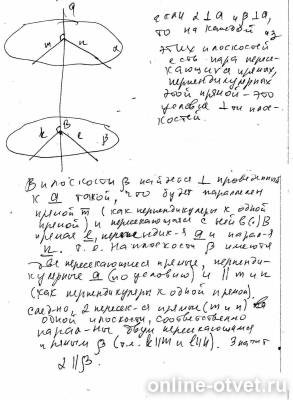 a
если α⊥a и β⊥a,
то на каждой из
этих плоскостей
есть пара пересе-
кающихся прямых,
перпендикулярных
этой прямой - это
условие ⊥ти плос-
костей.
m n α
B
k e β
В плоскости β найдется ⊥ проведенный
к a такой, что будет параллелен
прямой m (как перпендикуляры к одной
прямой) и пересекающаяся с ней в
прямая e, a и парал-я
n. Т.е. на плоскости β имеются
две пересекающиеся прямые, перпенди-
кулярные a (по условию) и || m и n
(как перпендикуляры к одной прямой).
след-но, 2 пересек-ся прямые (m и n)
одной плоскости, соответственно
парал-ны двум пересекающимся
прямым β (т.к. k||m и e||n). Значит
α||β.
online-otvet.ru